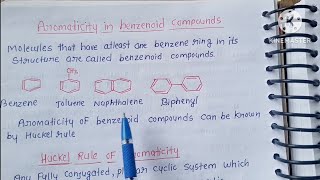 Aromaticity in benzenoid compounds
Molecules that have atleast one benzene ring in its
Structure are called benzenoid compounds.
CH₃
Benzene Toluene Naphthalene Biphenyl
Aromaticity of benzenoid compounds can be known
by Huckel rule
Huckel Rule of Aromaticity
Any fully conjugated, planar cyclic system which
KINEMASTER